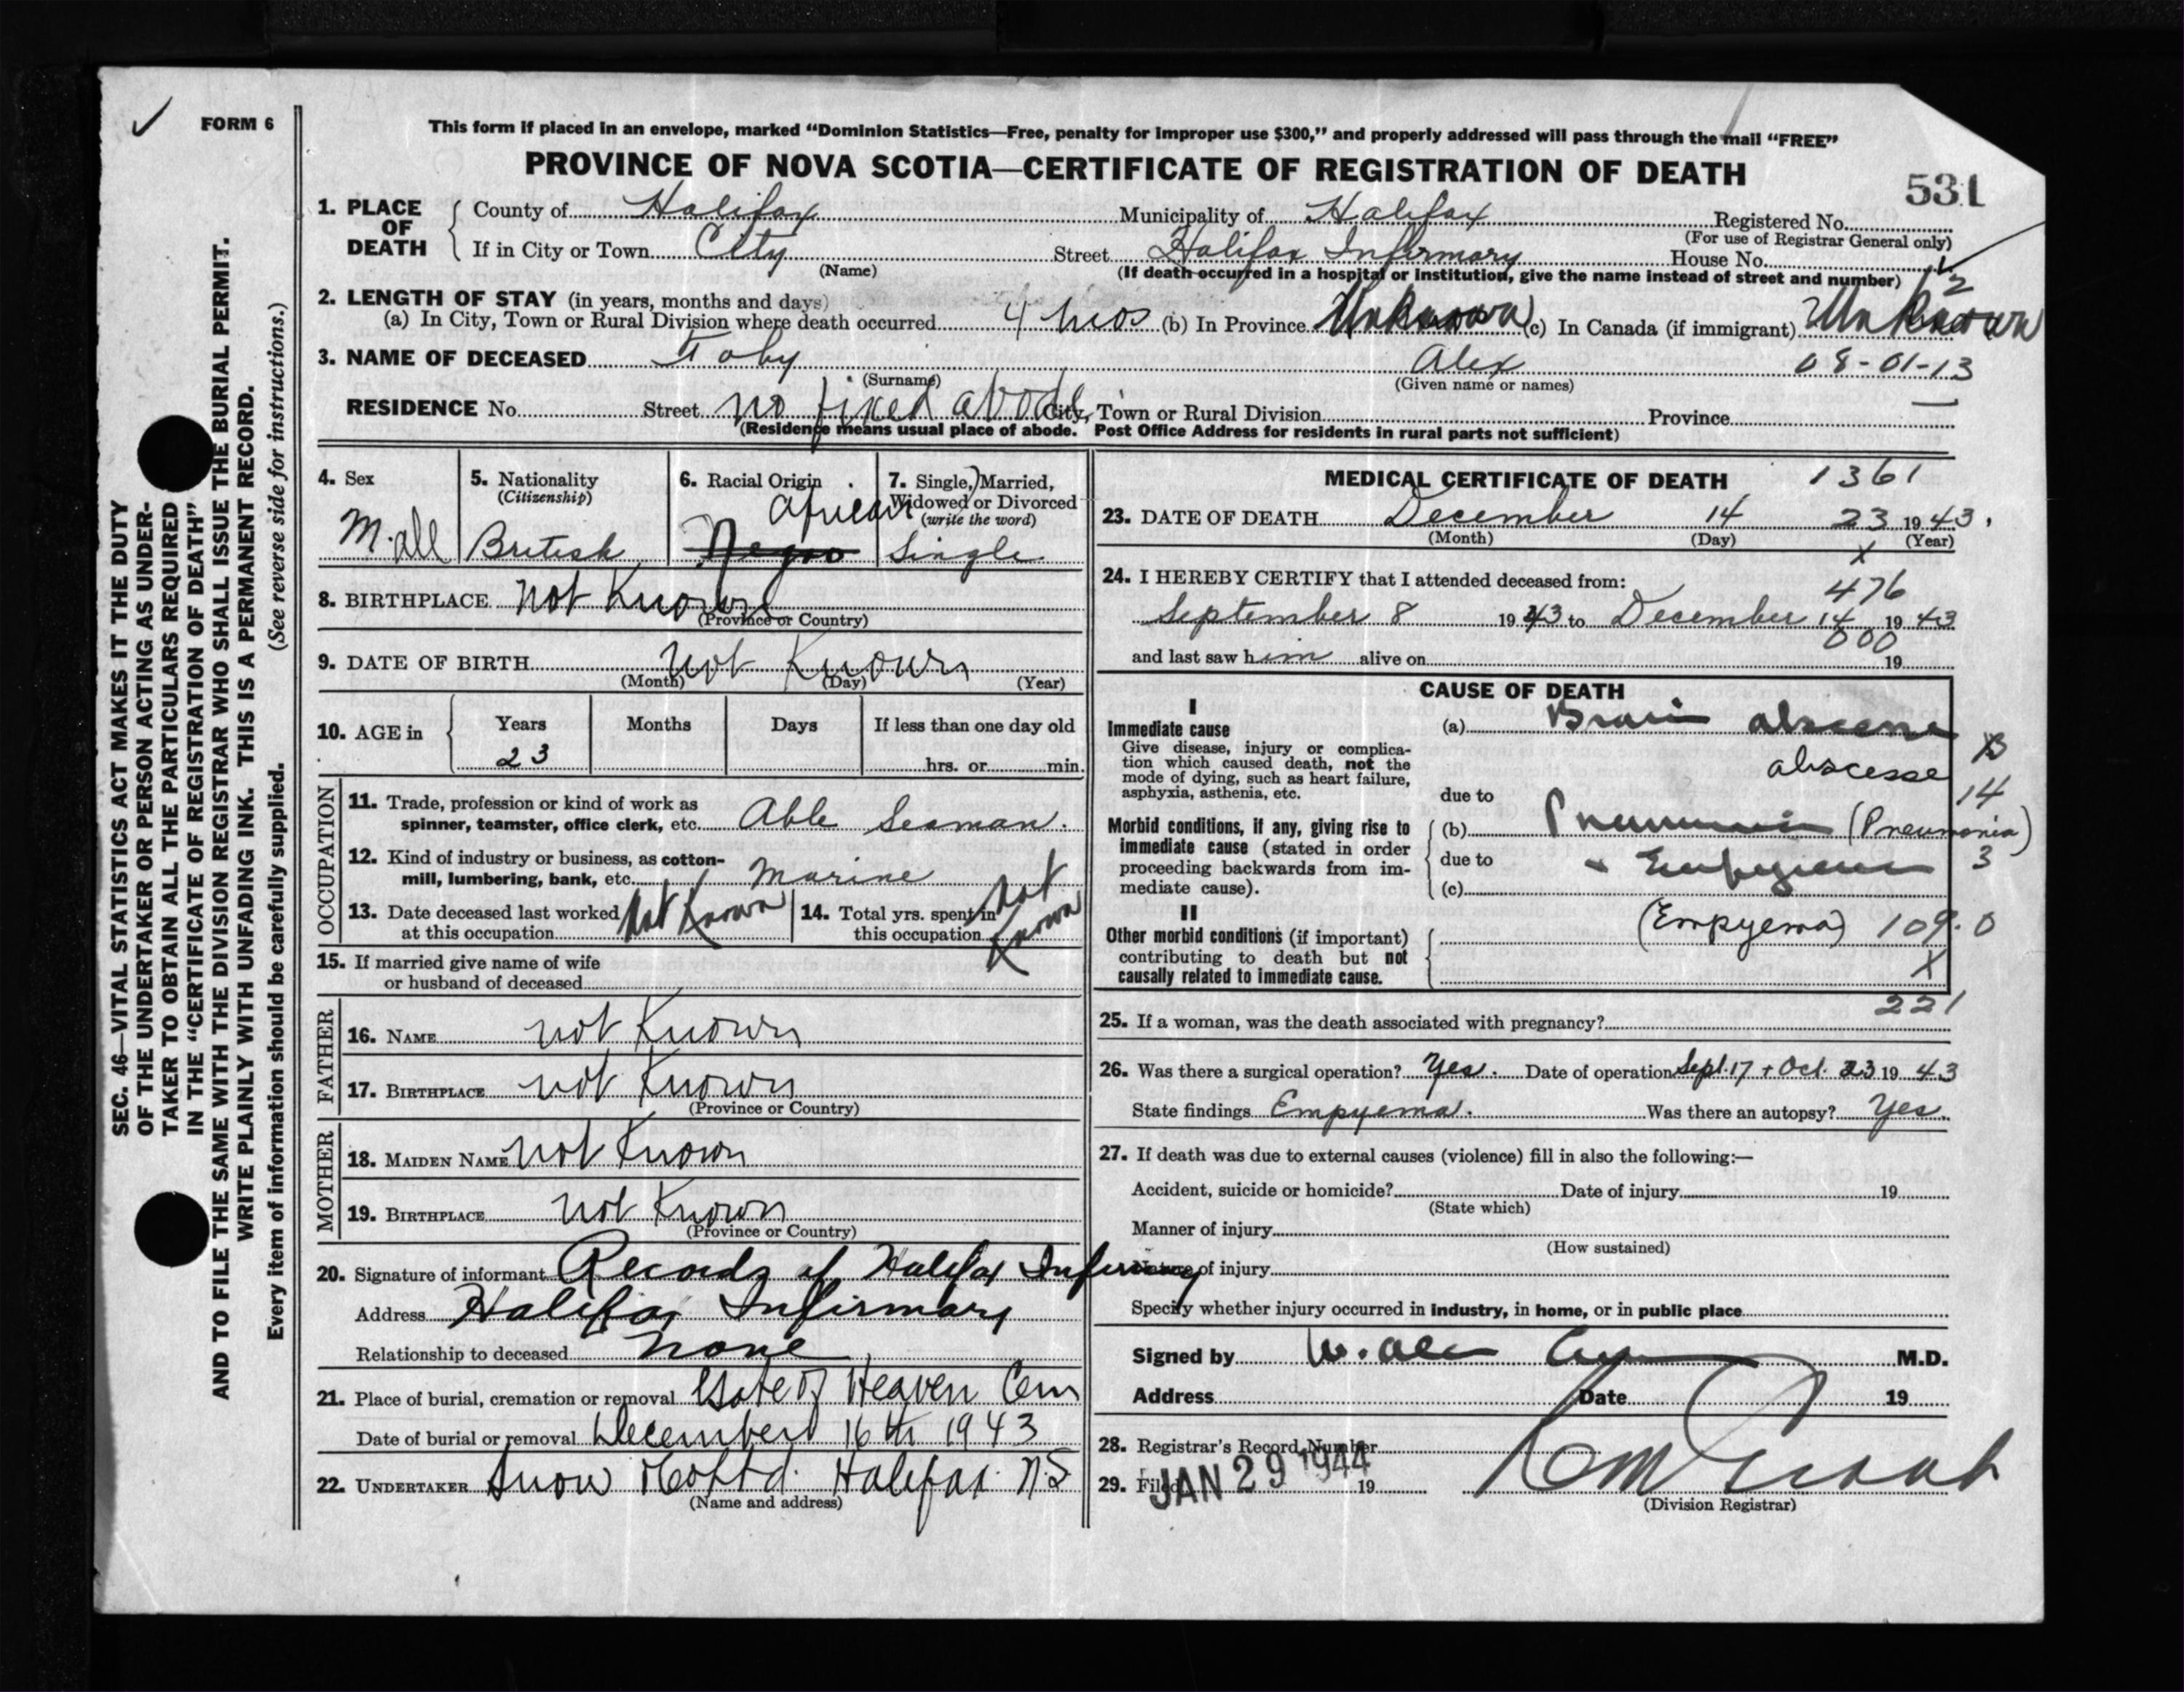 ✓
FORM 6
This form if placed in an envelope, marked “Dominion Statistics—Free, penalty for improper use $300,” and properly addressed will pass through the mail “FREE”
PROVINCE OF NOVA SCOTIA—CERTIFICATE OF REGISTRATION OF DEATH
531
1. PLACE OF DEATH
County of Halifax Municipality of Halifax Registered No.
(For use of Registrar General only)
If in City or Town City Street Halifax Infirmary House No.
(Name) (If death occurred in a hospital or institution, give the name instead of street and number)
12
2. LENGTH OF STAY (in years, months and days)
(a) In City, Town or Rural Division where death occurred 4 mos (b) In Province Unknown (c) In Canada (if immigrant) Unknown
3. NAME OF DECEASED Toby Alex 08-01-13
(Surname) (Given name or names)
RESIDENCE No. Street no fixed abode City, Town or Rural Division Province —
(Residence means usual place of abode. Post Office Address for residents in rural parts not sufficient)
SEC. 46—VITAL STATISTICS ACT MAKES IT THE DUTY
OF THE UNDERTAKER OR PERSON ACTING AS UNDER-
TAKER TO OBTAIN ALL THE PARTICULARS REQUIRED
IN THE “CERTIFICATE OF REGISTRATION OF DEATH”
AND TO FILE THE SAME WITH THE DIVISION REGISTRAR WHO SHALL ISSUE THE BURIAL PERMIT.
WRITE PLAINLY WITH UNFADING INK. THIS IS A PERMANENT RECORD.
Every item of information should be carefully supplied. (See reverse side for instructions.)
4. Sex 5. Nationality 6. Racial Origin 7. Single, Married,
(Citizenship) African Widowed or Divorced
(write the word)
Mall British Negro Single
8. BIRTHPLACE Not Known
(Province or Country)
9. DATE OF BIRTH Not Known
(Month) (Day) (Year)
10. AGE in Years Months Days If less than one day old
23 hrs. or min.
OCCUPATION
11. Trade, profession or kind of work as
spinner, teamster, office clerk, etc. Able Seaman.
12. Kind of industry or business, as cotton-
mill, lumbering, bank, etc. Marine
13. Date deceased last worked
at this occupation Not Known
14. Total yrs. spent in
this occupation Not Known
15. If married give name of wife
or husband of deceased
FATHER
16. NAME not Known
17. BIRTHPLACE not Known
(Province or Country)
MOTHER
18. MAIDEN NAME not Known
19. BIRTHPLACE not Known
(Province or Country)
20. Signature of informant Records of Halifax Infirmary
Address Halifax Infirmary
Relationship to deceased None
21. Place of burial, cremation or removal Gate of Heaven Cem
Date of burial or removal December 16th 1943
22. UNDERTAKER Snow & Co Ltd. Halifax N.S
(Name and address)
MEDICAL CERTIFICATE OF DEATH 1361
23. DATE OF DEATH December 14 23 1943.
(Month) (Day) (Year)
x
24. I HEREBY CERTIFY that I attended deceased from: 476
September 8 1943 to December 14 1943
000
and last saw him alive on 19
CAUSE OF DEATH
I
Immediate cause
Give disease, injury or complica-
tion which caused death, not the
mode of dying, such as heart failure,
asphyxia, asthenia, etc.
(a) Brain abscess
abscesse
14
due to
Morbid conditions, if any, giving rise to
immediate cause (stated in order
proceeding backwards from im-
mediate cause).
(b) Pneumonia (Pneumonia)
due to
3
(c) Empyema
(Empyema) 109.0
II
Other morbid conditions (if important)
contributing to death but not
causally related to immediate cause.
X
221
25. If a woman, was the death associated with pregnancy?
26. Was there a surgical operation? Yes. Date of operation Sept. 17 + Oct. 23 1943
State findings Empyema. Was there an autopsy? Yes.
27. If death was due to external causes (violence) fill in also the following:—
Accident, suicide or homicide? Date of injury 19
(State which)
Manner of injury
(How sustained)
Nature of injury
Specify whether injury occurred in industry, in home, or in public place
Signed by M.D.
Address Date 19
28. Registrar's Record Number
29. Filed JAN 29 1944 19
(Division Registrar)